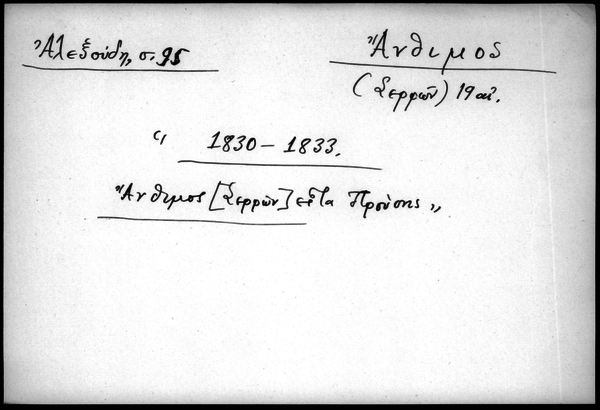 Ἀλεξούδη, σ. 95
Ἄνθιμος
(Σερρῶν) 19 αἰ.
“ 1830 – 1833.
Ἄνθιμος [Σερρῶν] εἶτα Προύσης „